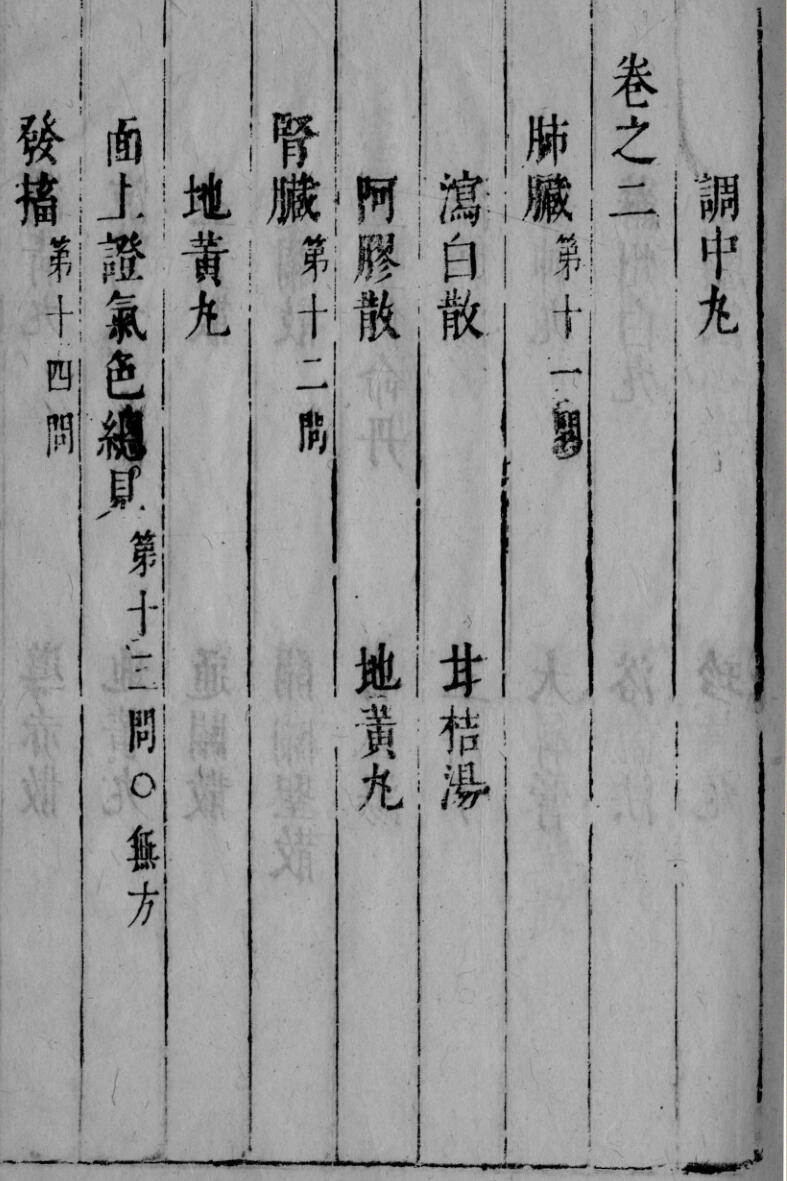 調中丸
卷之二
肺臟第十一問
瀉白散 甘桔湯
阿膠散 地黃丸
腎臟第十二問
地黃丸
面上證氣色總見第十三問○無方
發搐第十四問